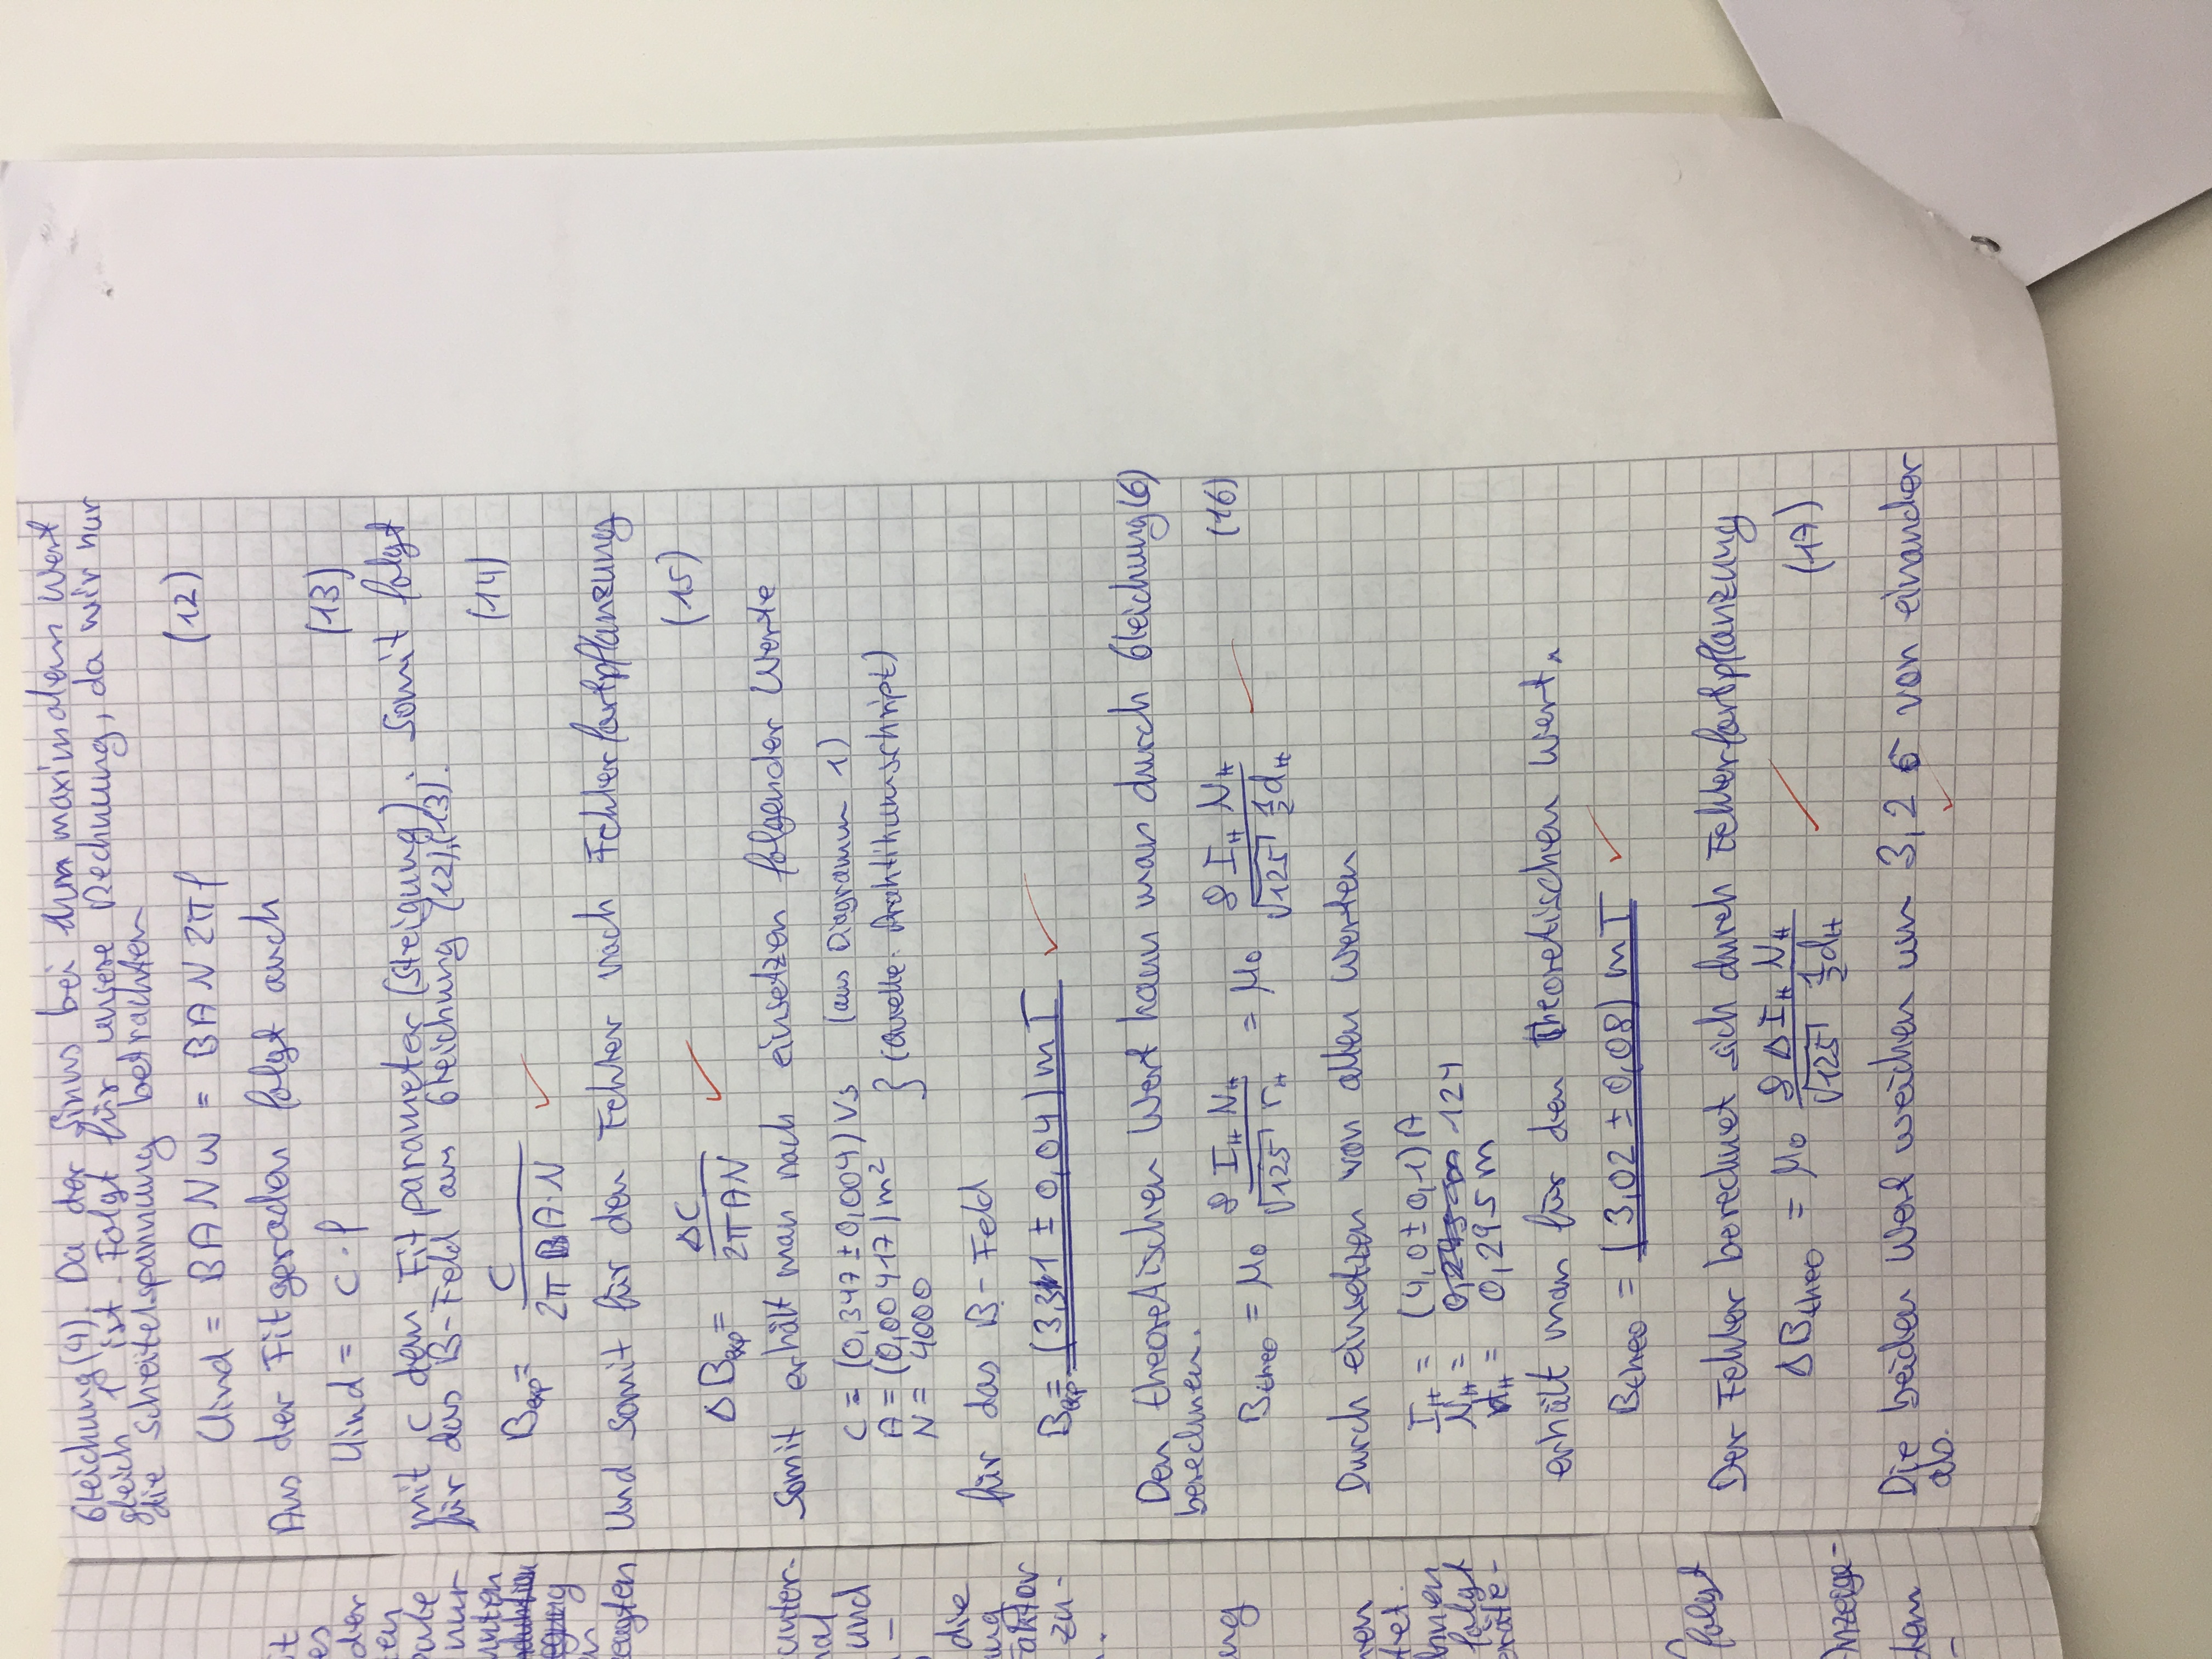 Gleichung (4). Da der Sinus bei ihrem maximalen Wert
gleich 1 ist. Folgt für unsere Rechnung, da wir nur
die Scheitelspannung betrachten
Uind = B A N ω = B A N 2π f (12)
Aus der Fitgeraden folgt auch
Uind = c · f (13)
mit c dem Fitparameter (Steigung). Somit folgt
für das B-Feld aus Gleichung (12),(13).
Bexp = C / 2π A·N (14)
Und somit für den Fehler nach Fehlerfortpflanzung
ΔBexp = ΔC / 2π A N (15)
Somit erhält man nach einsetzen folgender Werte
C = (0,347 ± 0,004) Vs (aus Diagramm 1)
A = (0,00417) m² } (Quelle: Praktikumsskript)
N = 4000
für das B-Feld
Bexp = (3,31 ± 0,04) mT
Den theoretischen Wert kann man durch Gleichung (6)
berechnen.
Btheo = μ0 8 IH NH / √125 rH = μ0 8 IH NH / √125 ½ dH (16)
Durch einsetzen von allen Werten
IH = (4,0 ± 0,1) A
NH = 124
dH = 0,295 m
erhält man für den theoretischen Wert.
Btheo = (3,02 ± 0,08) mT
Der Fehler berechnet sich durch Fehlerfortpflanzung
ΔBtheo = μ0 8 ΔIH NH / √125 ½ dH (17)
Die beiden Wert weichen um 3,2 σ von einander
ab.
es
der
ten
nur
unter-
und
die
ung
zu-
folgt
Anzeige-